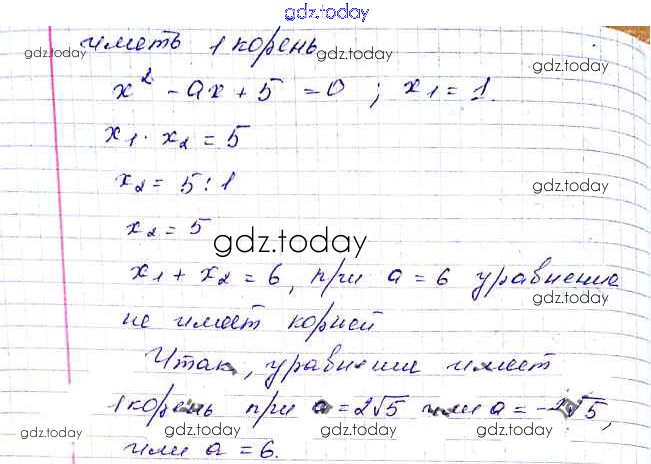 gdz.today
иметь 1 корень
gdz.today gdz.today gdz.today
x² - ax + 5 = 0 ; x₁ = 1.
x₁ · x₂ = 5
x₂ = 5 : 1
gdz.today
x₂ = 5
gdz.today
x₁ + x₂ = 6, при a = 6 уравнение
gdz.today
не имеет корней
Итак, уравнение имеет
gdz.today gdz.today gdz.today
1 корень при a = 2√5 или a = -2√5,
gdz.today gdz.today gdz.today
или a = 6.